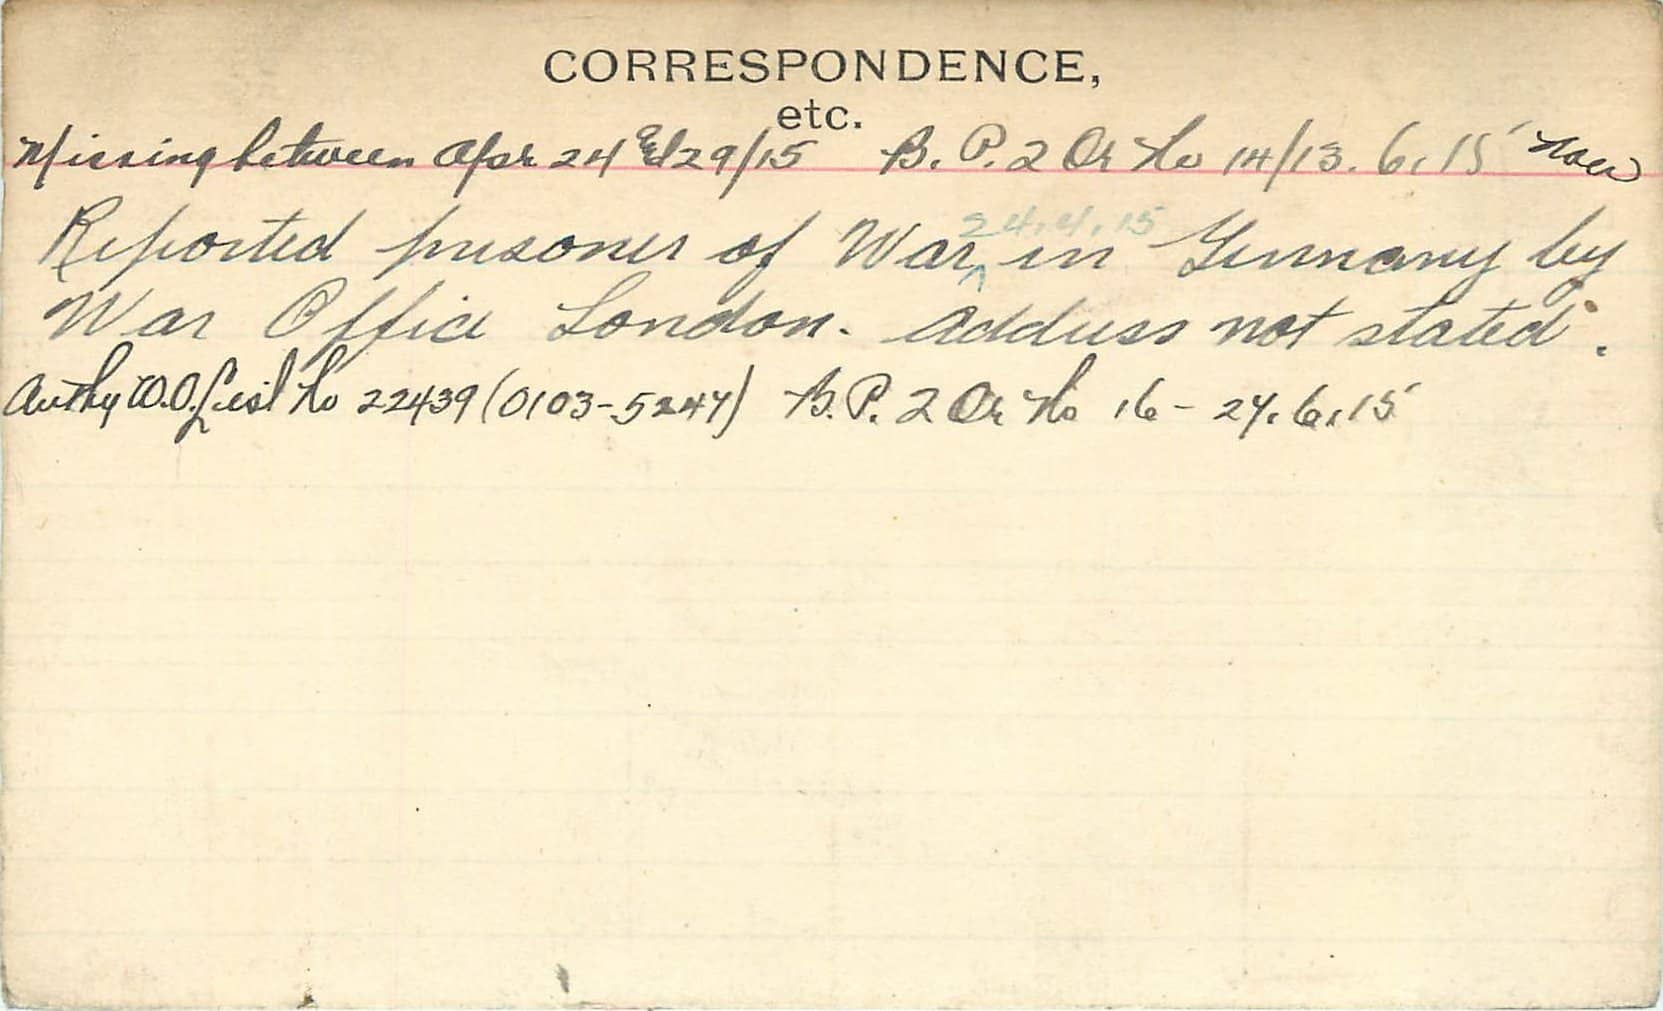 CORRESPONDENCE,
etc.
Missing between Apr 24 & 29/15 B. P. 2 Or No 14/13. 6. 15 now
24.4.15
Reported prisoner of War in Germany by
War Office London. Address not stated.
Authy W.O. List No 22439 (0103-5247) B. P. 2 Or No 16 - 27. 6. 15